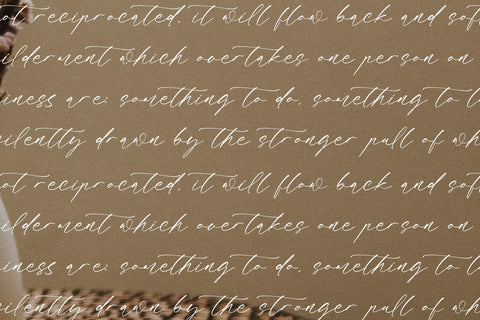 not reciprocated, it will flow back and soft
ilderment which overtakes one person on
iness are: something to do, something to l
silently drawn by the stronger pull of wh
not reciprocated, it will flow back and soft
ilderment which overtakes one person on
iness are: something to do, something to l
silently drawn by the stronger pull of wh